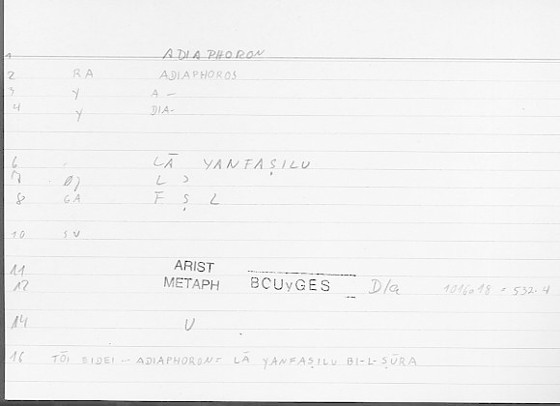 1 ADIAPHORON
2 RA ADIAPHOROS
3 Y A -
4 Y DIA-
6 LĀ YANFAṢILU
7 BJ L
8 GA F Ṣ L
10 SU
11 ARIST
12 METAPH BOUyGES D/a 1016a18 = 532.4
14 U
16 TŌI EIDEI - ADIAPHORON = LĀ YANFAṢILU BI-L-ṢŪRA